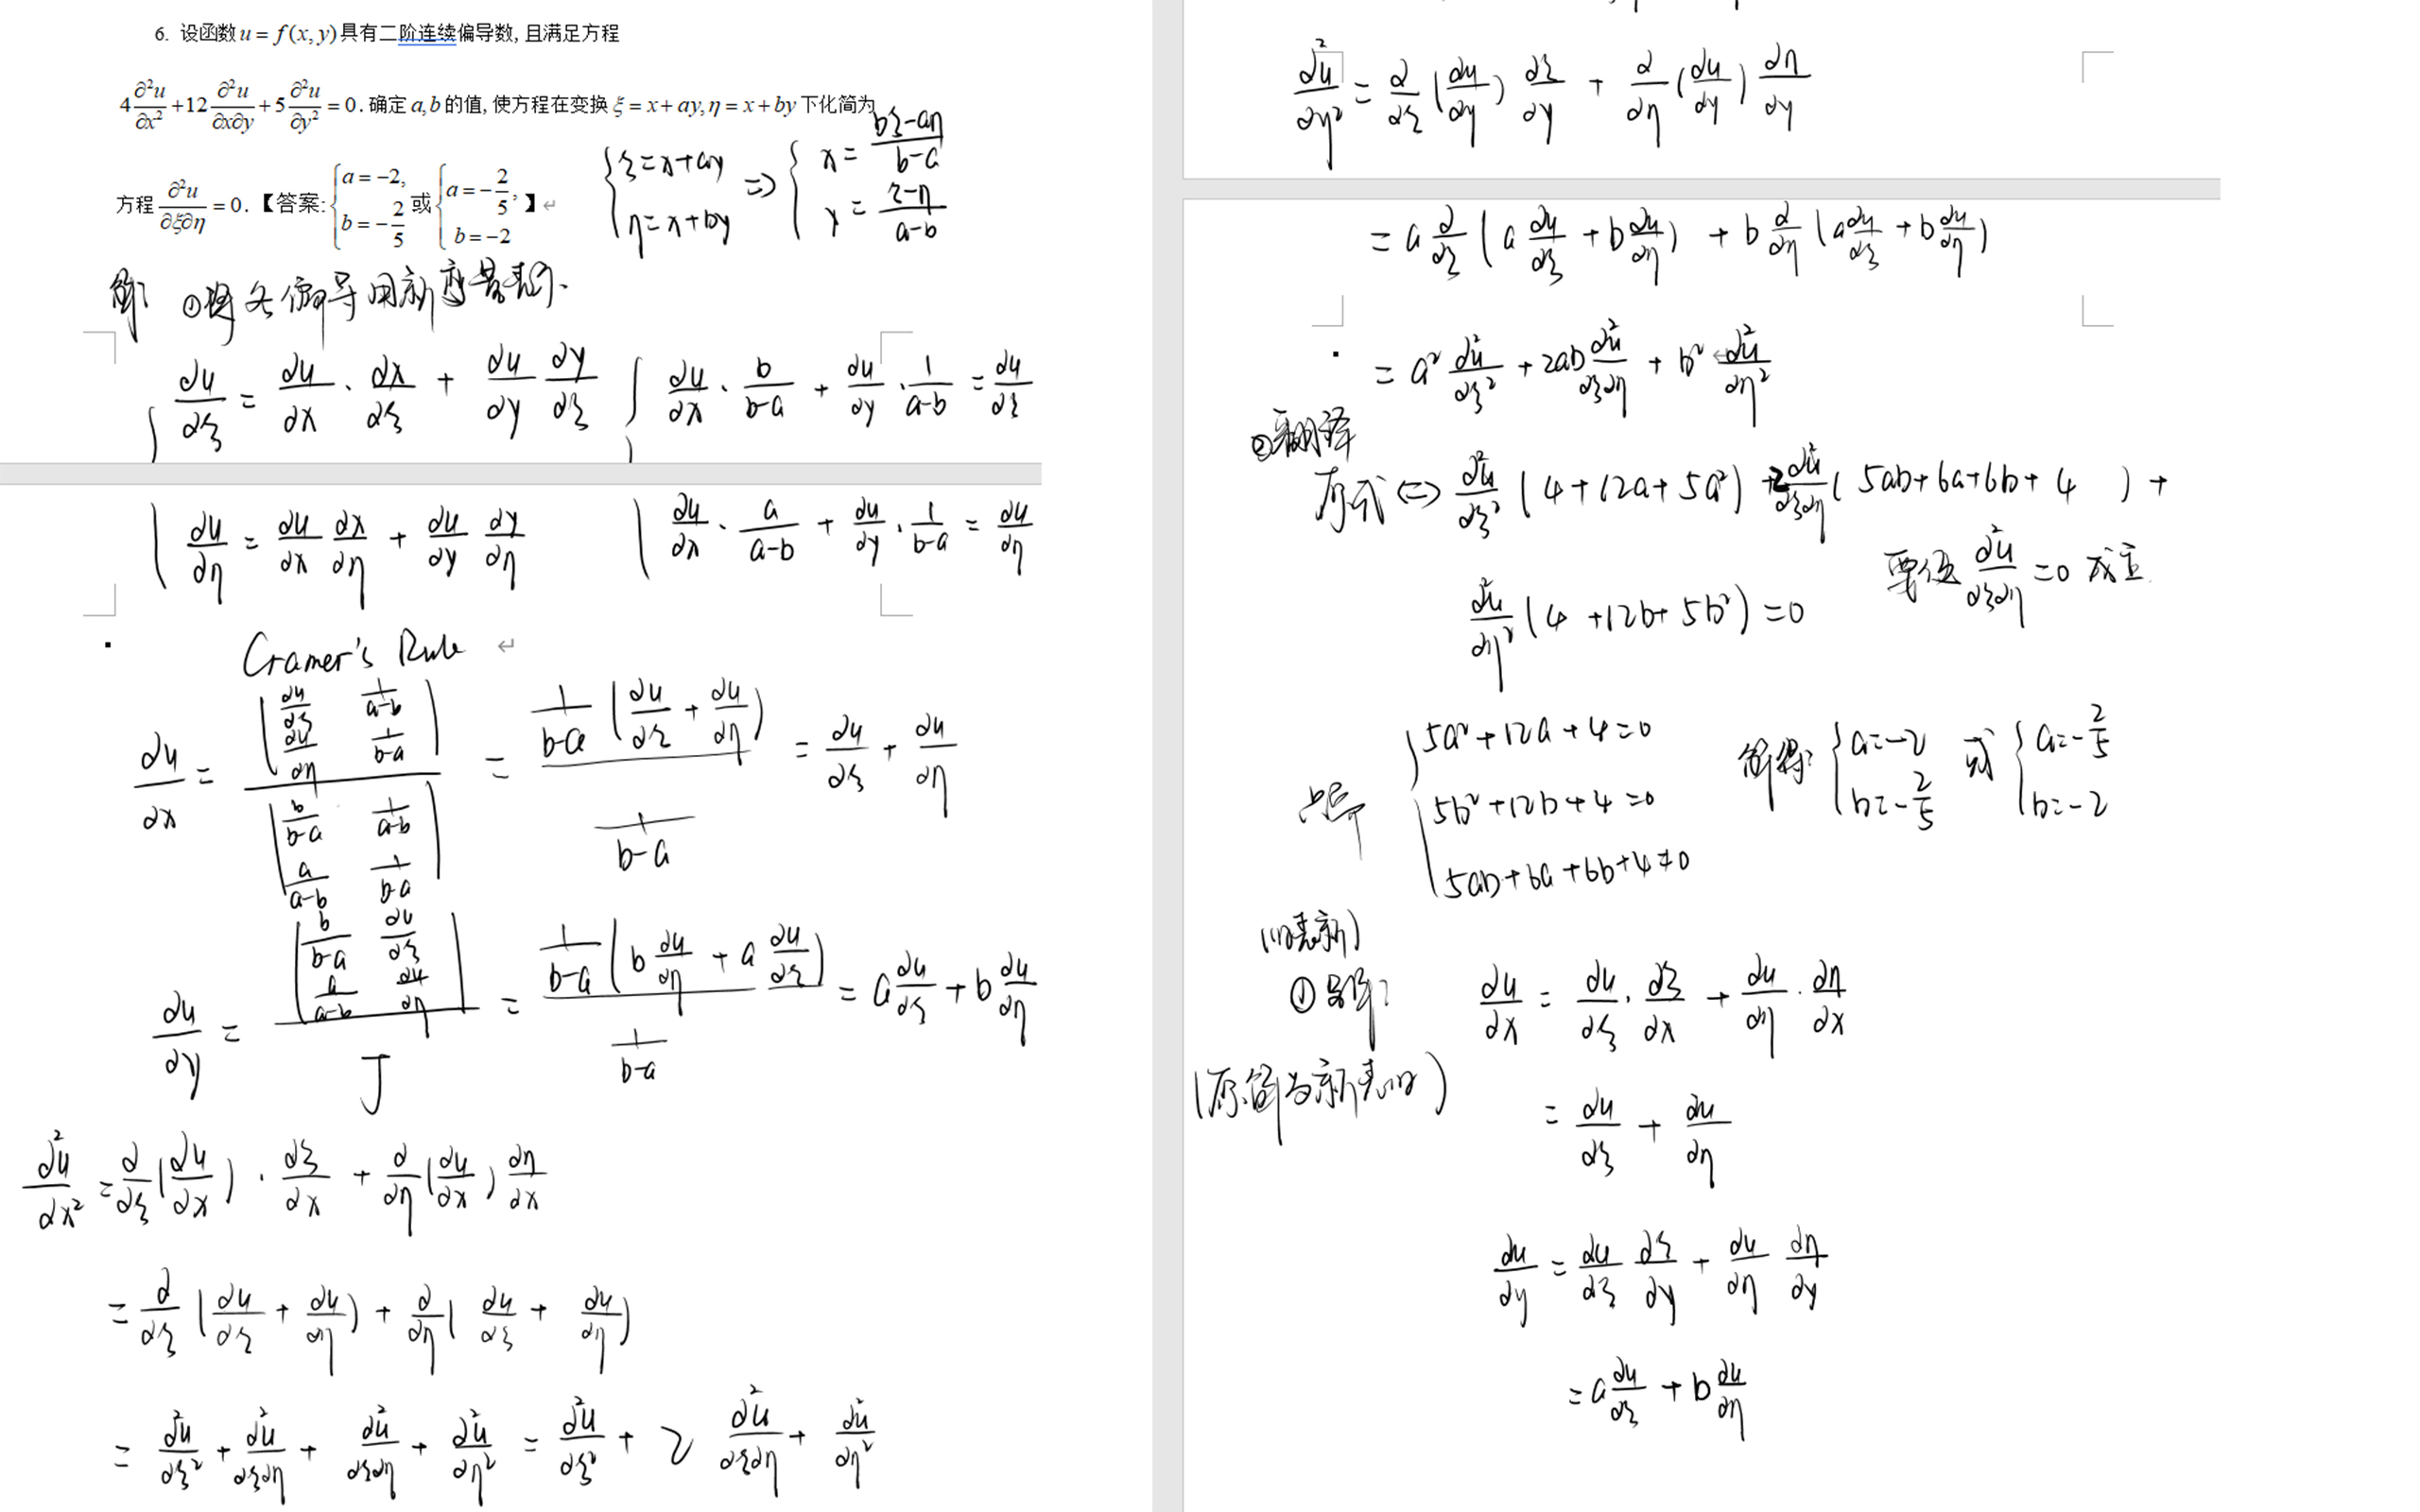 6. 设函数 u = f(x, y) 具有二阶连续偏导数, 且满足方程
4 ∂²u/∂x² + 12 ∂²u/∂x∂y + 5 ∂²u/∂y² = 0. 确定 a,b 的值, 使方程在变换 ξ = x + ay, η = x + by 下化简为
方程 ∂²u/∂ξ∂η = 0. 【答案: { a = −2, b = −2/5 或 { a = −2/5, b = −2 】
{ ξ=x+ay η=x+by => { x = (bξ-aη)/(b-a) y = (ξ-η)/(a-b)
解: ①将各偏导用新变量表示.
{ ∂u/∂ξ = ∂u/∂x · ∂x/∂ξ + ∂u/∂y ∂y/∂ξ { ∂u/∂x · b/(b-a) + ∂u/∂y · 1/(a-b) = ∂u/∂ξ
∂u/∂η = ∂u/∂x ∂x/∂η + ∂u/∂y ∂y/∂η ∂u/∂x · a/(a-b) + ∂u/∂y · 1/(b-a) = ∂u/∂η
Cramer's Rule
∂u/∂x = | ∂u/∂ξ 1/(a-b) ; ∂u/∂η 1/(b-a) | / | b/(b-a) 1/(a-b) ; a/(a-b) 1/(b-a) | = 1/(b-a) (∂u/∂ξ + ∂u/∂η) / 1/(b-a) = ∂u/∂ξ + ∂u/∂η
∂u/∂y = | b/(b-a) ∂u/∂ξ ; a/(a-b) ∂u/∂η | / J = 1/(b-a) (b ∂u/∂η + a ∂u/∂ξ) / 1/(b-a) = a ∂u/∂ξ + b ∂u/∂η
∂²u/∂x² = ∂/∂ξ (∂u/∂x) · ∂ξ/∂x + ∂/∂η (∂u/∂x) ∂η/∂x
= ∂/∂ξ (∂u/∂ξ + ∂u/∂η) + ∂/∂η ( ∂u/∂ξ + ∂u/∂η)
= ∂²u/∂ξ² + ∂²u/∂ξ∂η + ∂²u/∂ξ∂η + ∂²u/∂η² = ∂²u/∂ξ² + 2 ∂²u/∂ξ∂η + ∂²u/∂η²
∂²u/∂y² = ∂/∂ξ (∂u/∂y) ∂ξ/∂y + ∂/∂η (∂u/∂y) ∂η/∂y
= a ∂/∂ξ (a ∂u/∂ξ + b ∂u/∂η) + b ∂/∂η (a ∂u/∂ξ + b ∂u/∂η)
= a² ∂²u/∂ξ² + 2ab ∂²u/∂ξ∂η + b² ∂²u/∂η²
②翻译
原式 <=> ∂²u/∂ξ² (4+12a+5a²) + 2 ∂²u/∂ξ∂η ( 5ab+6a+6b+4 ) +
∂²u/∂η² (4+12b+5b²) = 0 要使 ∂²u/∂ξ∂η = 0 成立
{ 5a²+12a+4=0
5b²+12b+4=0
5ab+6a+6b+4≠0
解得: { a=-2 b=-2/5 或 { a=-2/5 b=-2
∂u/∂x = ∂u/∂ξ · ∂ξ/∂x + ∂u/∂η · ∂η/∂x
= ∂u/∂ξ + ∂u/∂η
∂u/∂y = ∂u/∂ξ ∂ξ/∂y + ∂u/∂η ∂η/∂y
= a ∂u/∂ξ + b ∂u/∂η